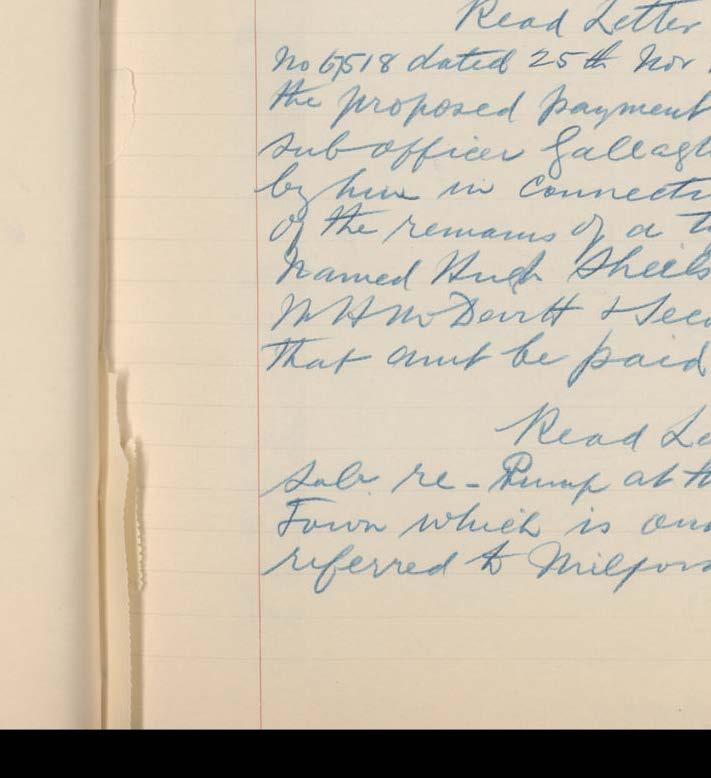 Read Letter
No 67518 dated 25th Nov
the proposed payment
sub officer Gallagh
by him in connecti
of the remains of a t
named Hugh Sheils
M H McDevitt & Sec
that amt be paid
Read Le
Sab re - Pump at th
Town which is one
referred to Milfor